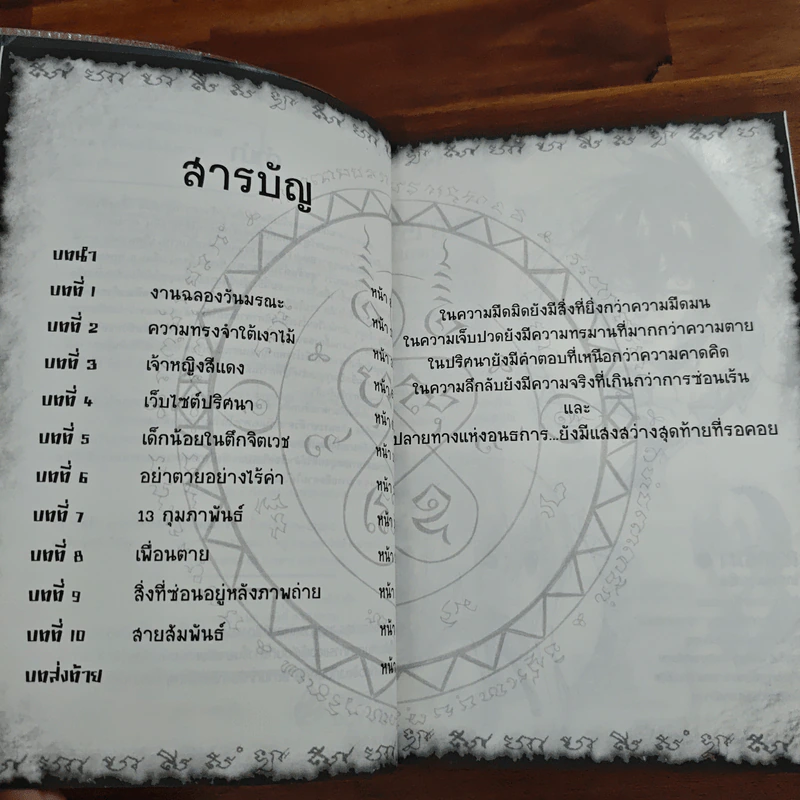 สารบัญ
บทนำ
บทที่ 1 งานฉลองวันมรณะ หน้า
บทที่ 2 ความทรงจำใต้เงาไม้ หน้า
บทที่ 3 เจ้าหญิงสีแดง หน้า
บทที่ 4 เว็บไซต์ปริศนา หน้า
บทที่ 5 เด็กน้อยในตึกจิตเวช หน้า
บทที่ 6 อย่าตายอย่างไร้ค่า หน้า
บทที่ 7 13 กุมภาพันธ์ หน้า
บทที่ 8 เพื่อนตาย หน้า
บทที่ 9 สิ่งที่ซ่อนอยู่หลังภาพถ่าย หน้า
บทที่ 10 สายสัมพันธ์ หน้า
บทส่งท้าย หน้า
ในความมืดมิดยังมีสิ่งที่ยิ่งกว่าความมืดมน
ในความเจ็บปวดยังมีความทรมานที่มากกว่าความตาย
ในปริศนายังมีคำตอบที่เหนือกว่าความคาดคิด
ในความลึกลับยังมีความจริงที่เกินกว่าการซ่อนเร้น
และ
ปลายทางแห่งอนธการ...ยังมีแสงสว่างสุดท้ายที่รอคอย